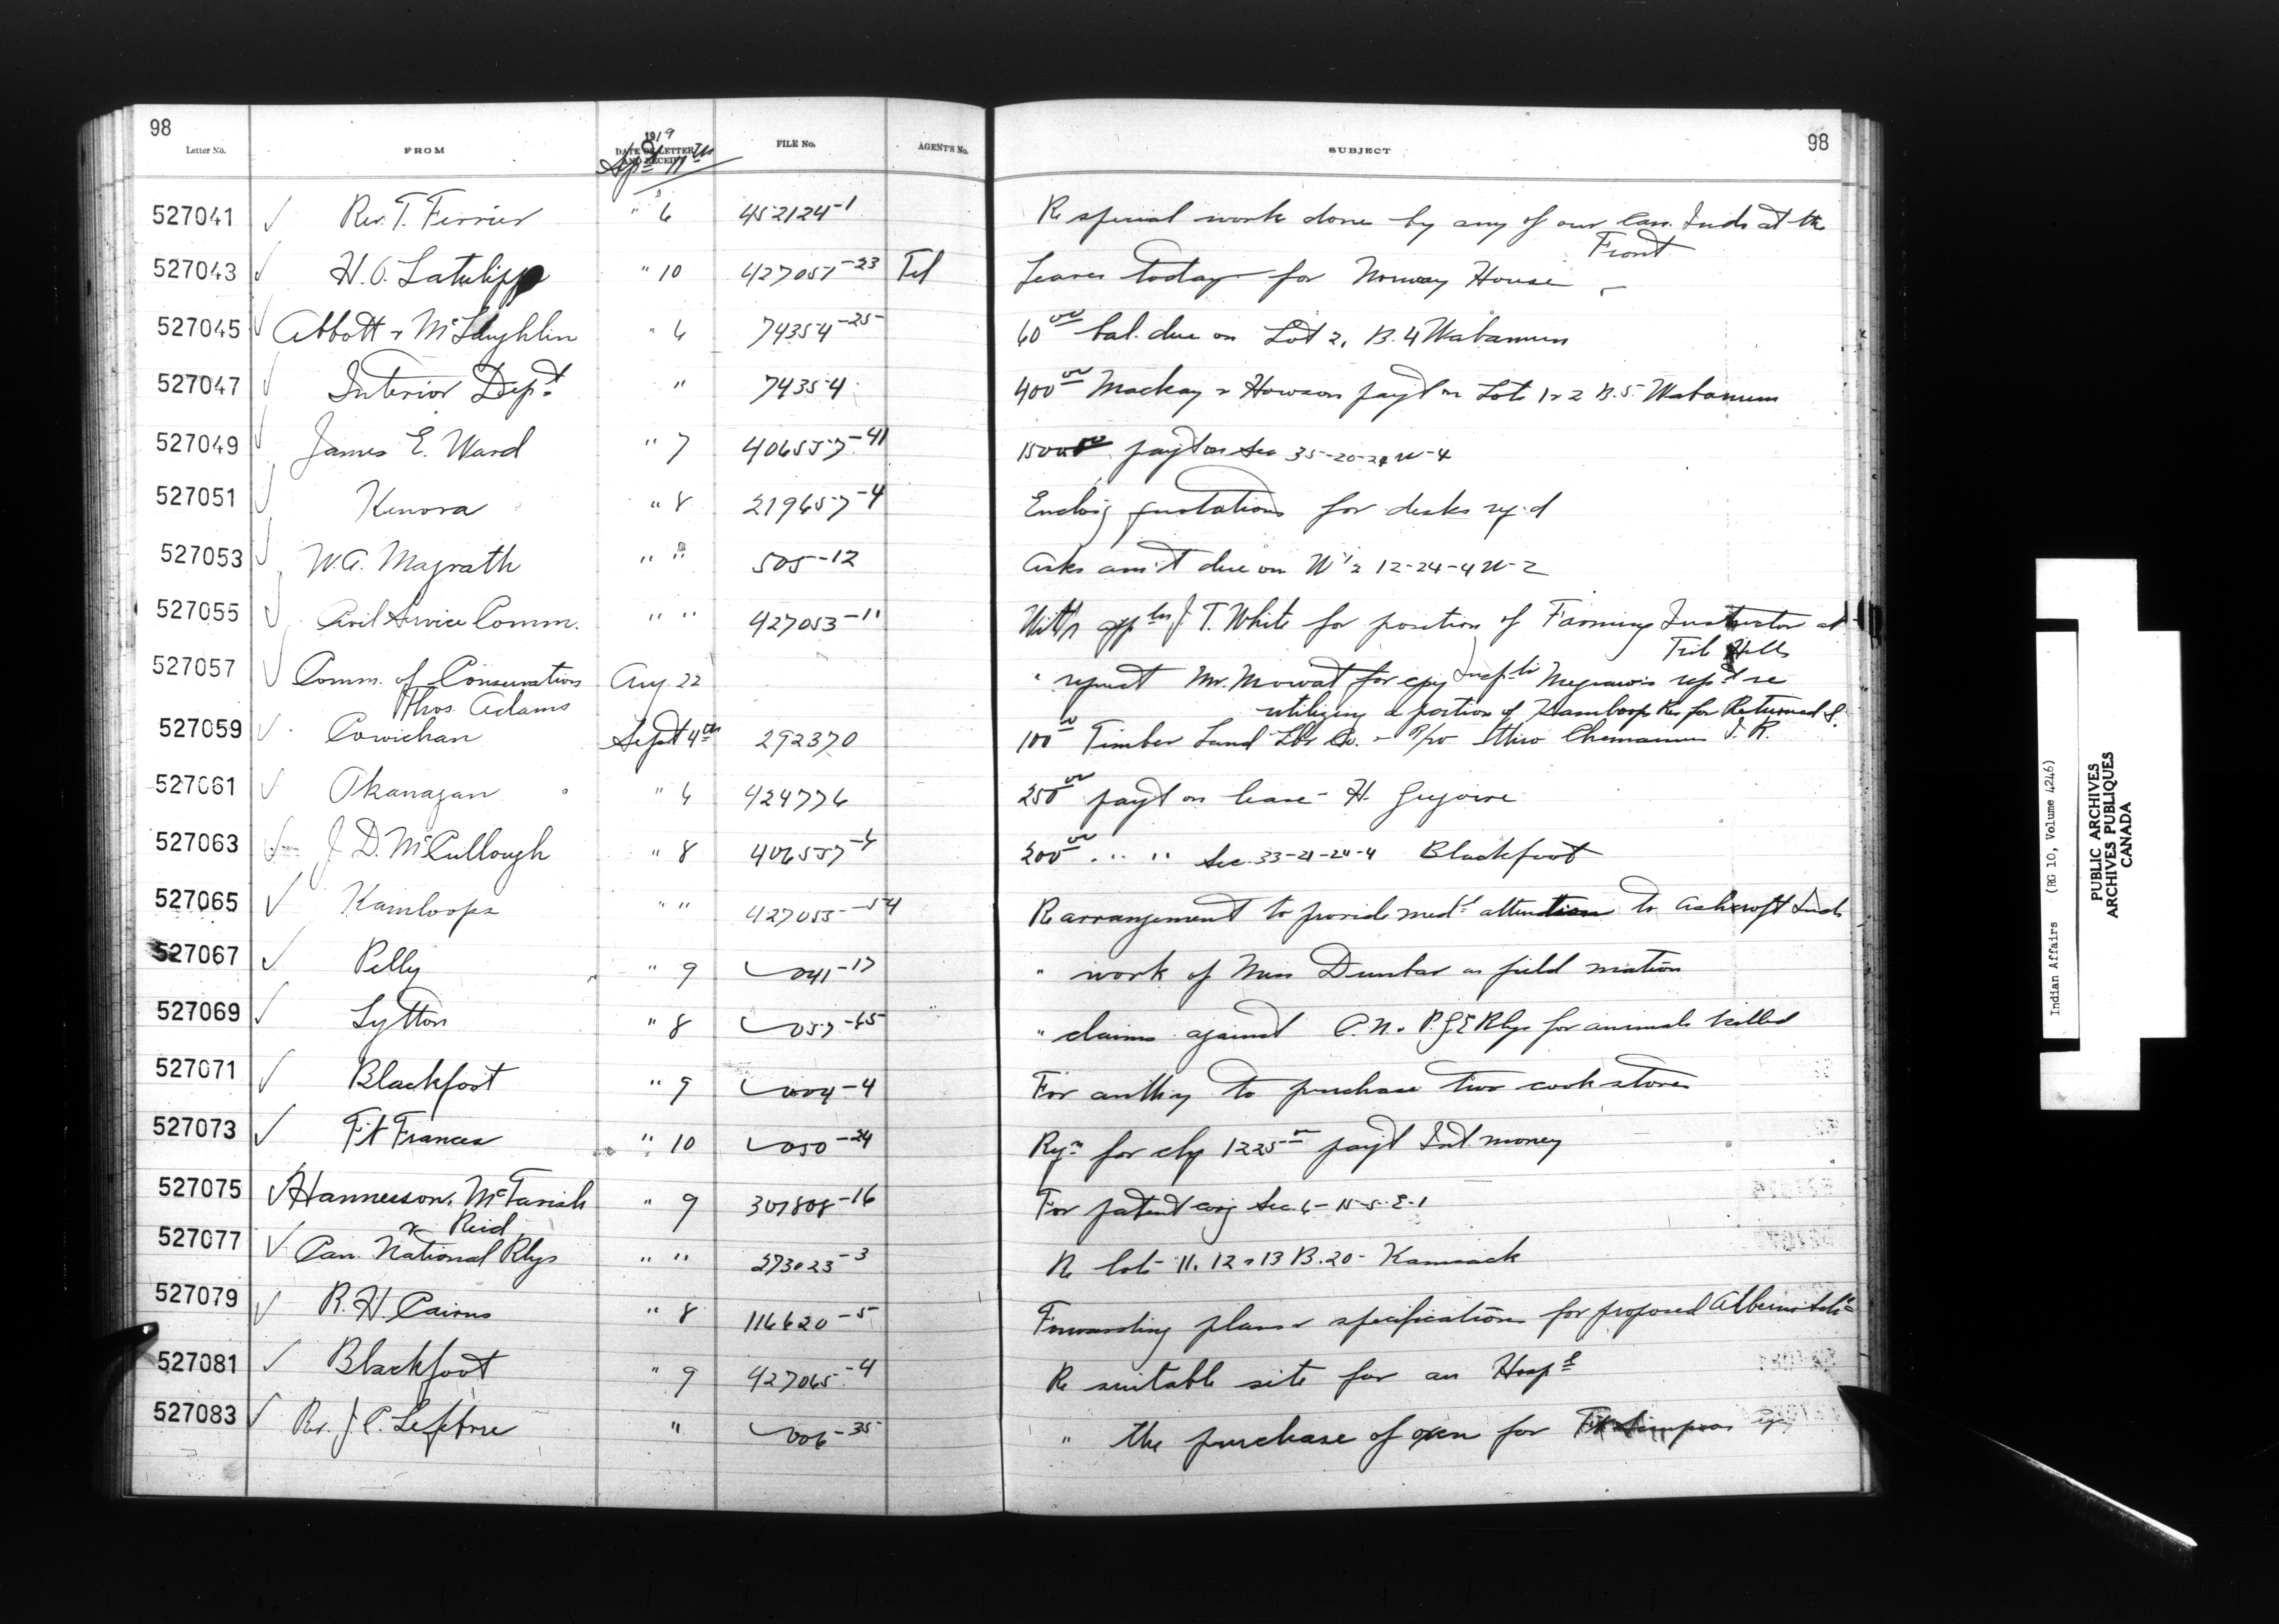 98
98
Letter No. FROM 1919 DATE OF LETTER AND RECEIPT FILE No. AGENT'S No. SUBJECT
Sept 11th
527041 ✓ Rev. T. Ferrier " 6 452124-1 Re special work done by any of our Can. Inds at the
Front
527043 ✓ H.O. Latulippe " 10 427057-23 Tel Leaves today for Norway House
527045 ✓ Abbott & McLaughlin " 6 74354-25 60 00 bal. due on Lot 2, B. 4 Wabamun
527047 ✓ Interior Dept " 74354 400 00 Mackay & Howson payt on Lots 1 & 2 B.5. Wabamun
527049 ✓ James E. Ward " 7 406557-41 1500 00 payt on Sec 35-20-24 W-4
527051 ✓ Kenora " 8 219657-4 Enclos'g quotations for desks reqd
527053 ✓ W.A. Magrath " " 505-12 Asks am't due on W 1/2 12-24-4 W-2
527055 ✓ Civil Service Comm. " " 427053-11 With appln J. T. White for position of Farming Instructor at
File Hills
527057 ✓ Comm. of Conservation Aug. 22 " request Mr. Mowat for cpy Inspts Megraw's rept re
Thos. Adams utilizing a portion of Kamloops Res for Returned S.
527059 ✓ Cowichan Sept 4th 292370 100 00 Timber Land Lbr Co. - Chemainus I. R.
527061 ✓ Okanagan " 6 424776 250 00 payt on lease - H. Gregoire
527063 ✓ J. D. McCullough " 8 406557-6 200 00 " " Sec. 33-21-24-4 Blackfoot
527065 ✓ Kamloops " " 427055-54 Re arrangement to provide medl attention to Ashcroft Inds
527067 ✓ Pelly " 9 ✓041-17 " work of Miss Dunbar as field matron
527069 ✓ Lytton " 8 ✓057-65 " claims against C.N. & P.G.E Rlys for animals killed
527071 ✓ Blackfoot " 9 ✓004-4 For authy to purchase two cook stoves
527073 ✓ Ft Frances " 10 ✓050-24 Reqn for chq 1225 00 payt Int. money
527075 ✓ Hannesson, McTavish " 9 307808-16 For patent covg Sec. 6-15-5-E-1
& Reid
527077 ✓ Can. National Rlys " " 273023-3 Re lots 11, 12 & 13 B.20- Kamsack
527079 ✓ R. H. Cairns " 8 116620-5 Forwarding plans & specifications for proposed Alberni Schl
527081 ✓ Blackfoot " 9 427065-4 Re suitable site for an Hospl
527083 ✓ Rev. J. P. Lefebvre " ✓006-35 " the purchase of oxen for Ft Simpson Agy
Indian Affairs (RG 10, Volume 4246)
PUBLIC ARCHIVES
ARCHIVES PUBLIQUES
CANADA